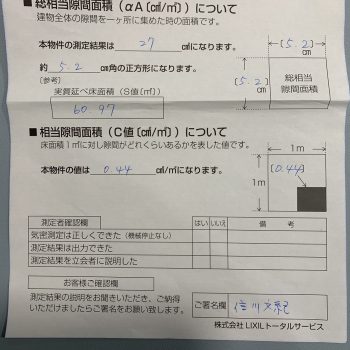 ■ 総相当隙間面積（αA〔c㎡/㎡〕）について
建物全体の隙間を一ヶ所に集めた時の面積です。
本物件の測定結果は 27 c㎡になります。
約 5.2 cm角の正方形になります。
〔5.2〕
cm
〔5.2〕
cm
総相当
隙間面積
[参考]
実質延べ床面積（S値〔㎡〕）
60.97
■ 相当隙間面積（C値〔c㎡/㎡〕）について
床面積1㎡に対し隙間がどれくらいあるかを表した値です。
本物件の値は 0.44 c㎡/㎡になります。
1m
1m
〔0.44〕
測定者確認欄
はい いいえ 備考
気密測定は正しくできた（機械停止なし）
測定結果は出力できた
測定結果を立会者に説明した
お客様ご確認欄
測定結果の説明をお聞きいただき、ご納得
いただけましたらご署名をお願い致します。
ご署名欄
株式会社 LIXILトータルサービス